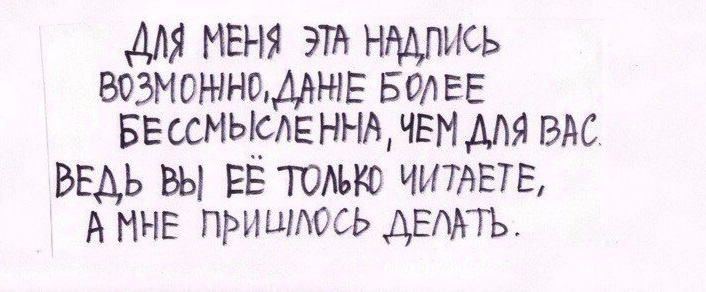 ДЛЯ МЕНЯ ЭТА НАДПИСЬ
ВОЗМОЖНО, ДАЖЕ БОЛЕЕ
БЕССМЫСЛЕННА, ЧЕМ ДЛЯ ВАС.
ВЕДЬ ВЫ ЕЁ ТОЛЬКО ЧИТАЕТЕ,
А МНЕ ПРИШЛОСЬ ДЕЛАТЬ.